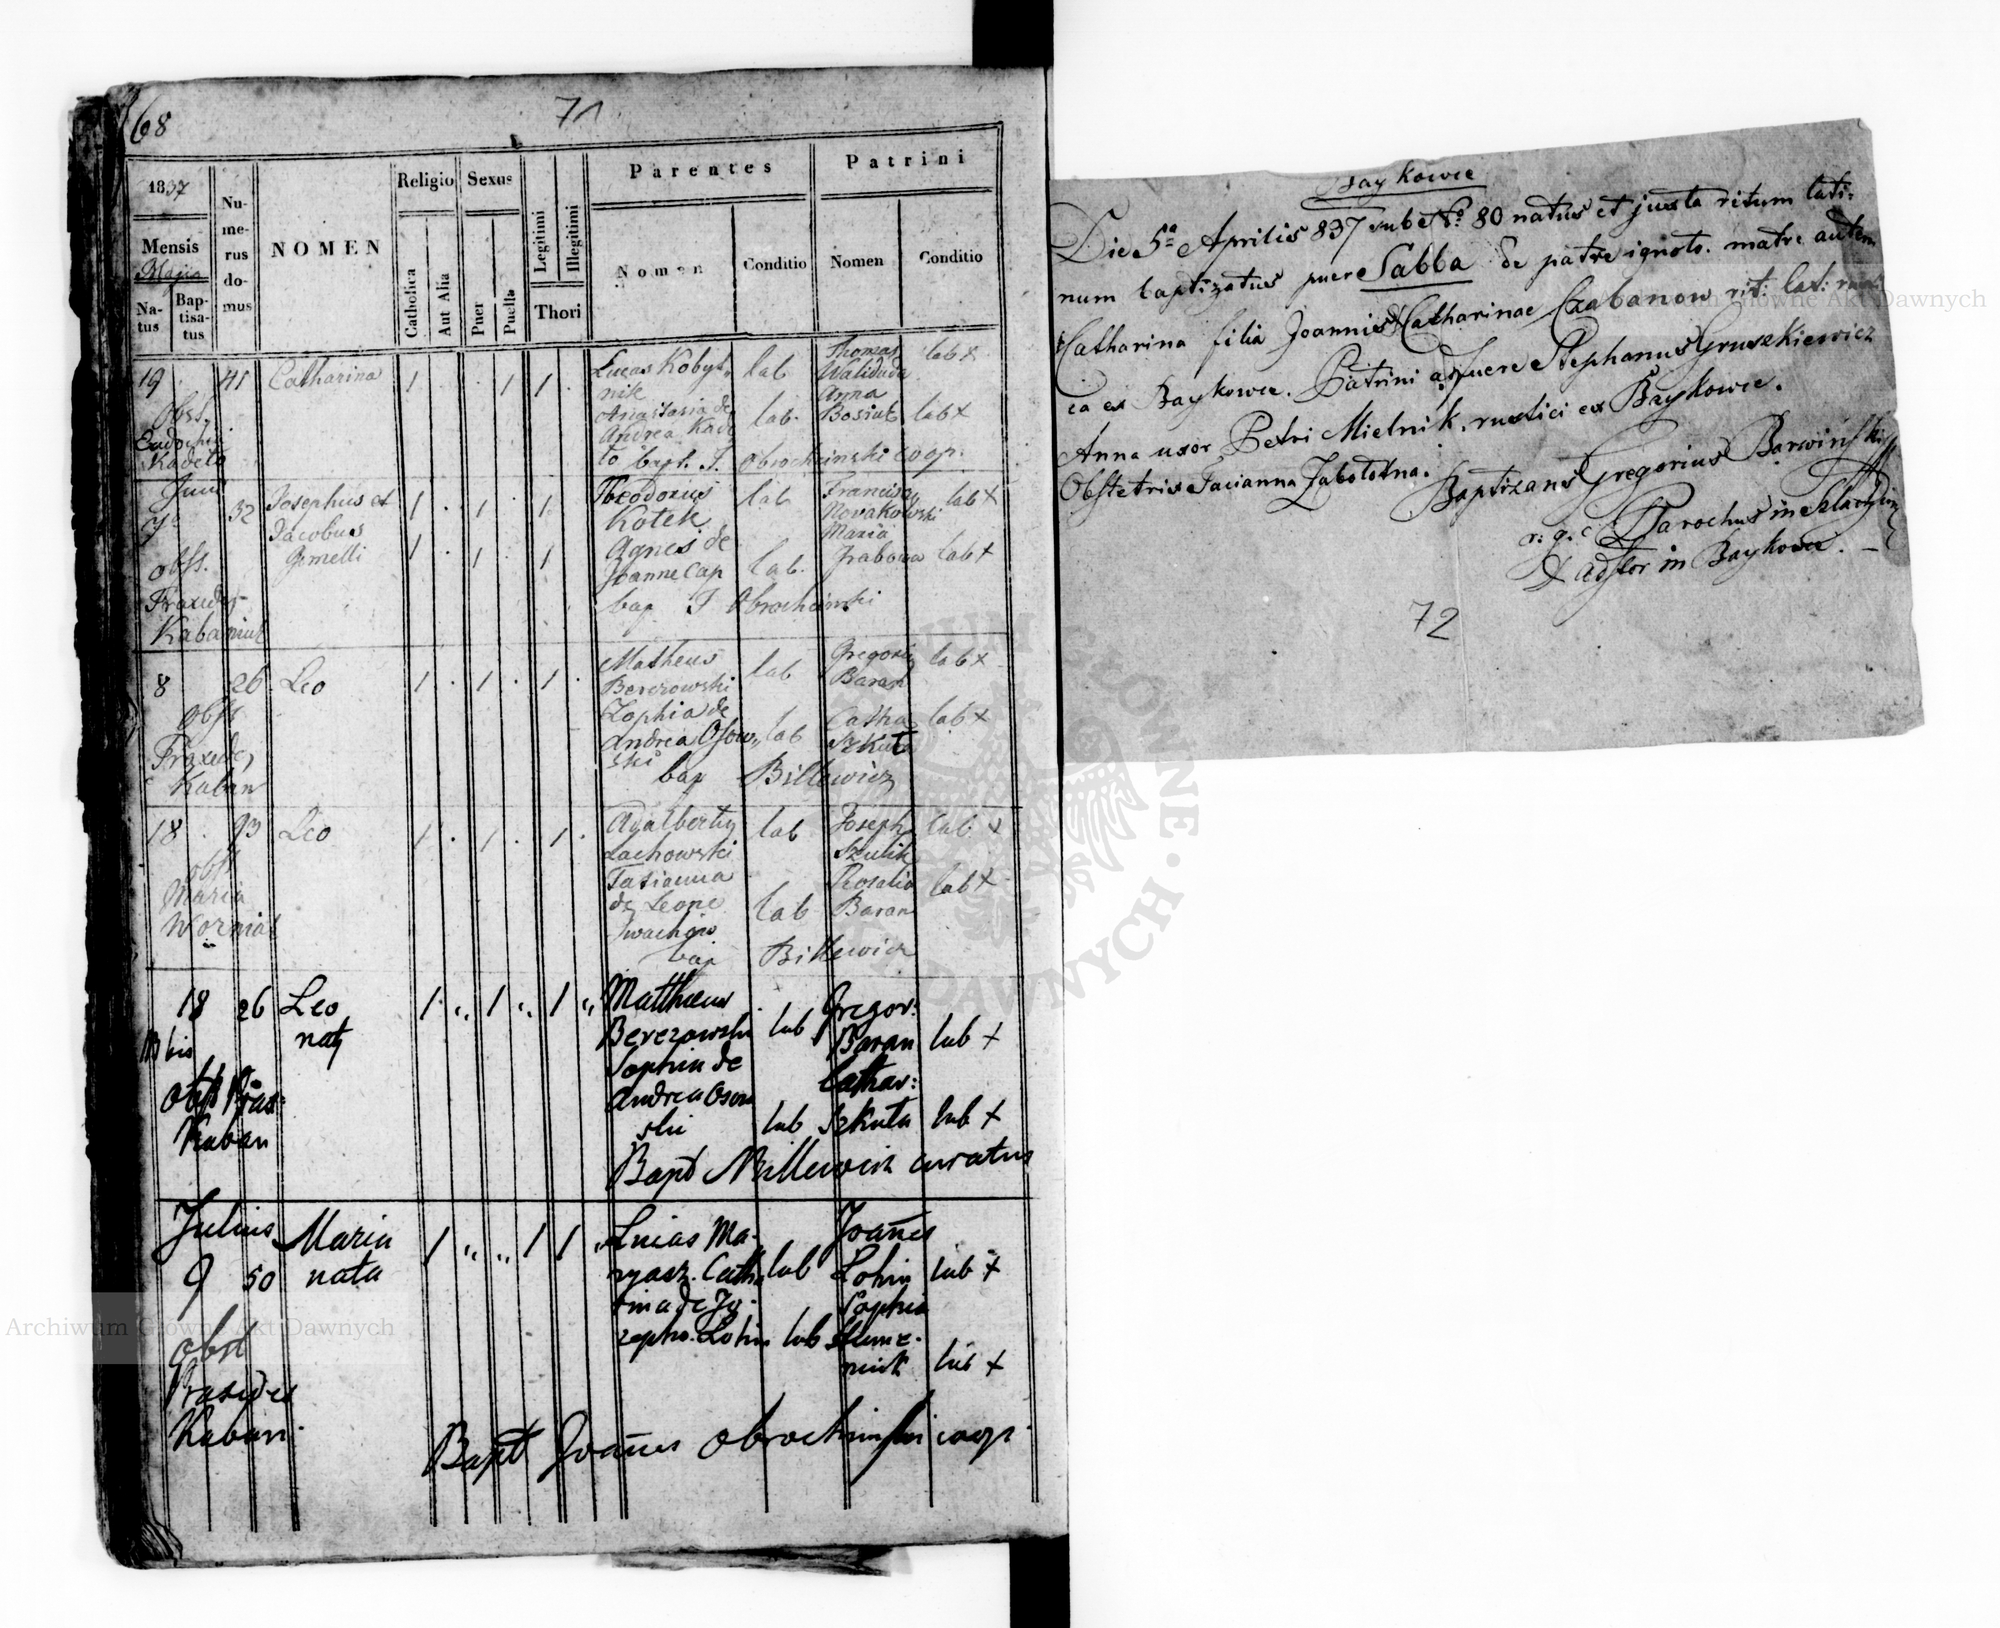 68
71
1837
Mensis
Majus
Natus
Baptisatus
Numerus domus
NOMEN
Religio
Catholica
Aut Alia
Sexus
Puer
Puella
Legitimi
Illegitimi
Thori
Parentes
Nomen
Conditio
Patrini
Nomen
Conditio
19 41 Catharina 1 . . 1 1 . Lucas Kobyl- lab Thomas lab +
nik Waliduda
Obst. Anastasia de Anna
Eudochia Andrea Kade lab. Bosiuk lab +
Kadeta to bapt. J. Obrochcinski coop.
Juni
32 Josephus et 1 . 1 . 1 Theodorus lab Francisc, lab +
Jacobus Kotek Novakowski
Gemelli 1 . 1 . 1 Agnes de Maria
obst. Joanne Cap lab. Grabowa lab +
Praxedes bap J Obrochcinski
Kabaniuk
8 26 Leo 1 . 1 . 1 . Matheus lab Gregori lab +
Berezowski Baran
obst Zophia de Catha lab +
Praxedes Andrea Osow,, lab Szkuta
Kaban ski
bap Billewicz
18 93 Leo 1 . 1 . 1 . Adalbertus lab Joseph lab +
Lachowski Szulik
obst Tatianna Rosalia lab +
Maria de Leone lab Baran
Worniak Iwachow
bap Billewicz
18 26 Leo 1 ,, 1 ,, 1 ,, Mattheus Gregor:
bis nat Berezowski lab Baran lab +
Sophia de Cathar:
Obst Prax: Andrea Osow
Kaban ski lab Szkuta lab +
Bapt Billewicz curatus
Julius Maria 1 ,, ,, 1 1 ,, Lucas Ma- Joanes
9 50 nata ryasz. Catha lab Lohin lab +
rina de Jo- Sophia
obst zepho. Lohin lab
Praxedes niuk lab +
Kaban.
Bapt Joanes Obrochcinski coop.
Baykowce
Die 5ª Aprilis 837 sub No. 80 natus et juxta ritum lati-
num baptizatus puer Sabba de patre ignoto. matre autem
Catharina filia Joannis & Catharinae Czabanow rit: lat: rusti
ca ex Baykowce. Patrini adfuere Stephanus Gruszkiewicz
Anna uxor Petri Mielnik, rustici ex Baykowce.
Obstetrix Tacianna Zabolotna. Baptizans Gregorius Barwinski
r. g. c. Parochus in
& adstor in Baykowce. —
72
Archiwum Główne Akt Dawnych
Archiwum Główne Akt Dawnych
ARCHIWUM GŁÓWNE AKT DAWNYCH